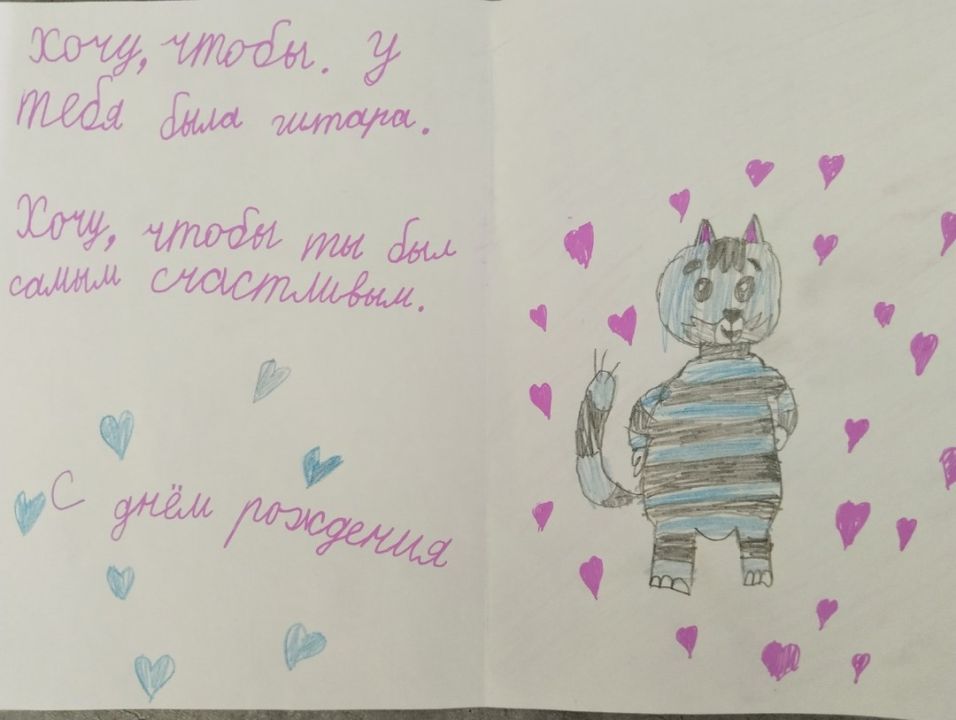 Хочу, чтобы. У
тебя была гитара.
Хочу, чтобы ты был
самым счастливым.
С днём рождения